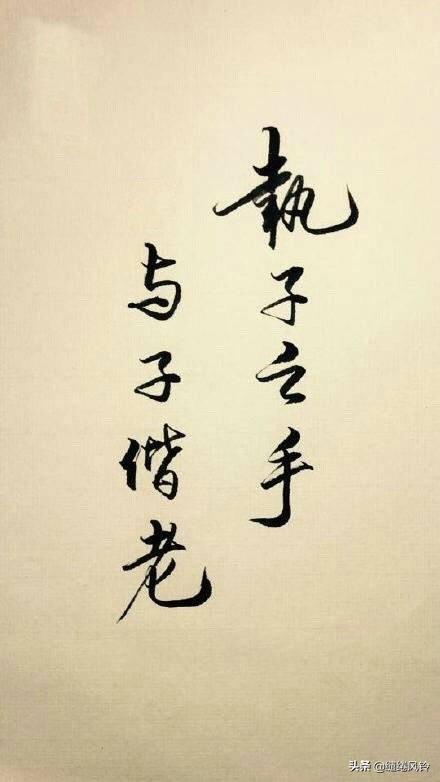 執子之手
与子偕老
头条 @缱绻风铃